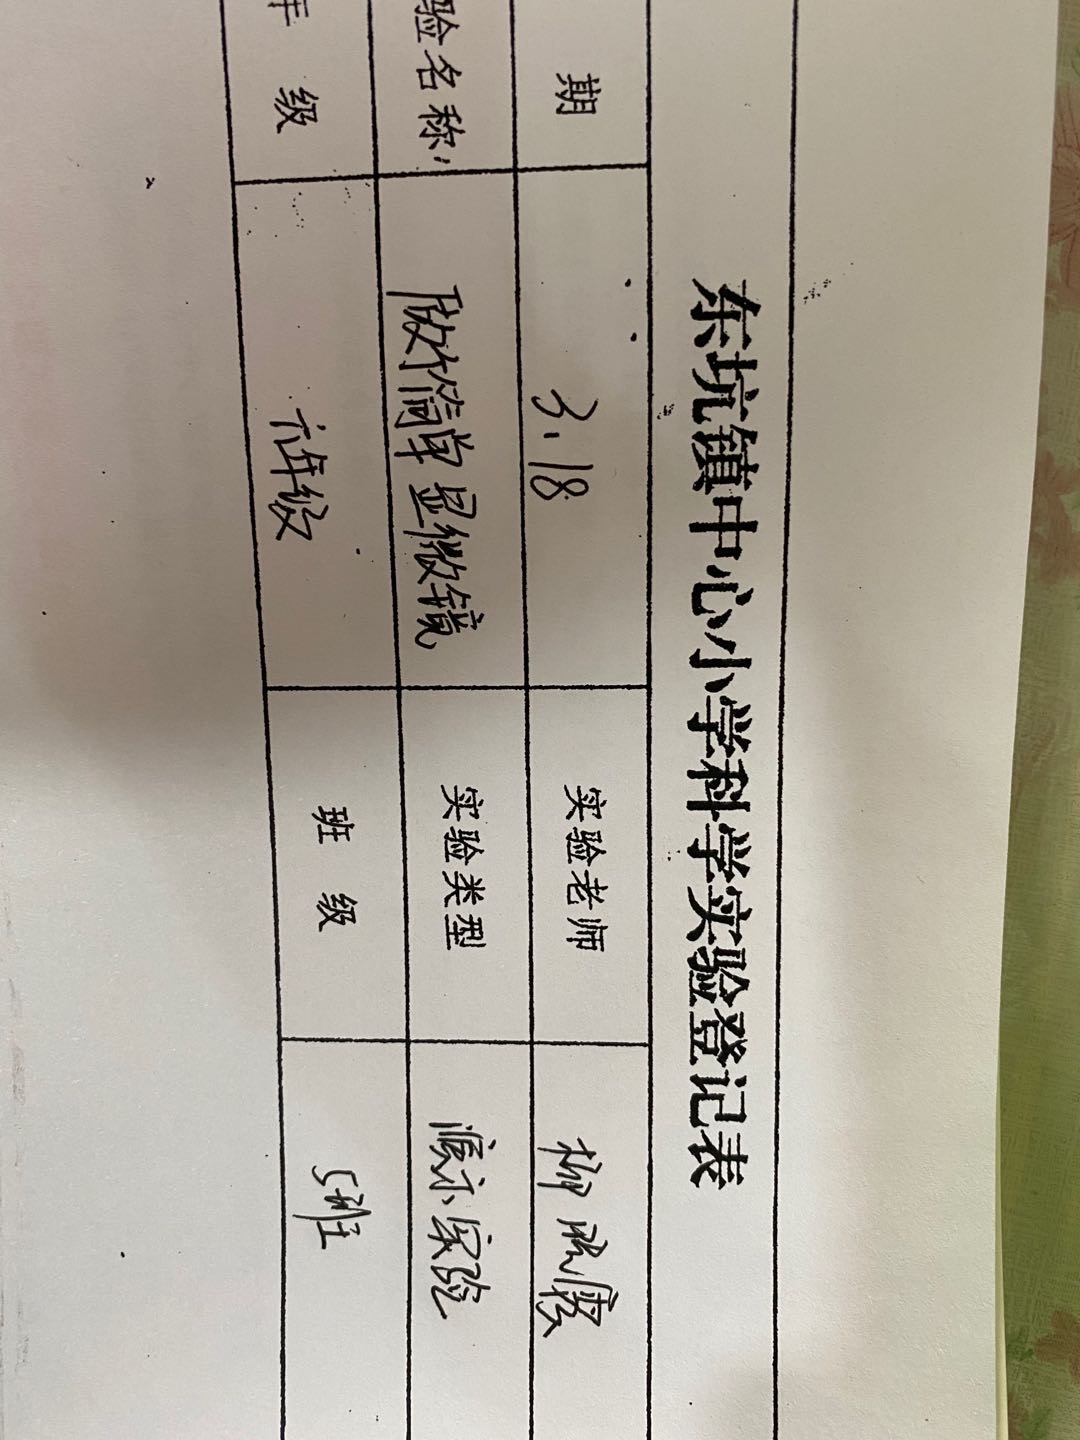 东坑镇中心小学科学实验登记表
期 3.18 实验老师 柳
验名称 做个简单显微镜 实验类型 演示实验
年 级 六年级 班 级 5班